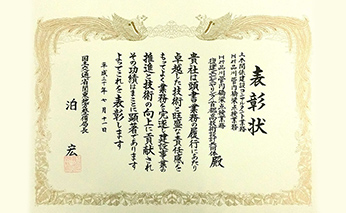 表彰状
土木関係建設コンサルタント業務
H19品川管内橋梁点検業務
H19品川管内橋梁点検業務
殿
貴社は頭書業務の履行にあたり
卓越した技術と旺盛な責任感を
もってよく業務を完遂し建設事業の
推進と技術の向上に貢献され
その功績はまことに顕著であります
よってこれを表彰します
平成二十年七月十一日
国土交通省関東地方整備局長
泊宏